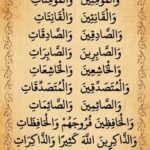 وَالْمُؤْمِنِينَ وَالْمُؤْمِنَاتِ
وَالْقَانِتِينَ وَالْقَانِتَاتِ
وَالصَّادِقِينَ وَالصَّادِقَاتِ
وَالصَّابِرِينَ وَالصَّابِرَاتِ
وَالْخَاشِعِينَ وَالْخَاشِعَاتِ
وَالْمُتَصَدِّقِينَ وَالْمُتَصَدِّقَاتِ
وَالصَّائِمِينَ وَالصَّائِمَاتِ
وَالْحَافِظِينَ فُرُوجَهُمْ وَالْحَافِظَاتِ
وَالذَّاكِرِينَ اللَّهَ كَثِيرًا وَالذَّاكِرَاتِ